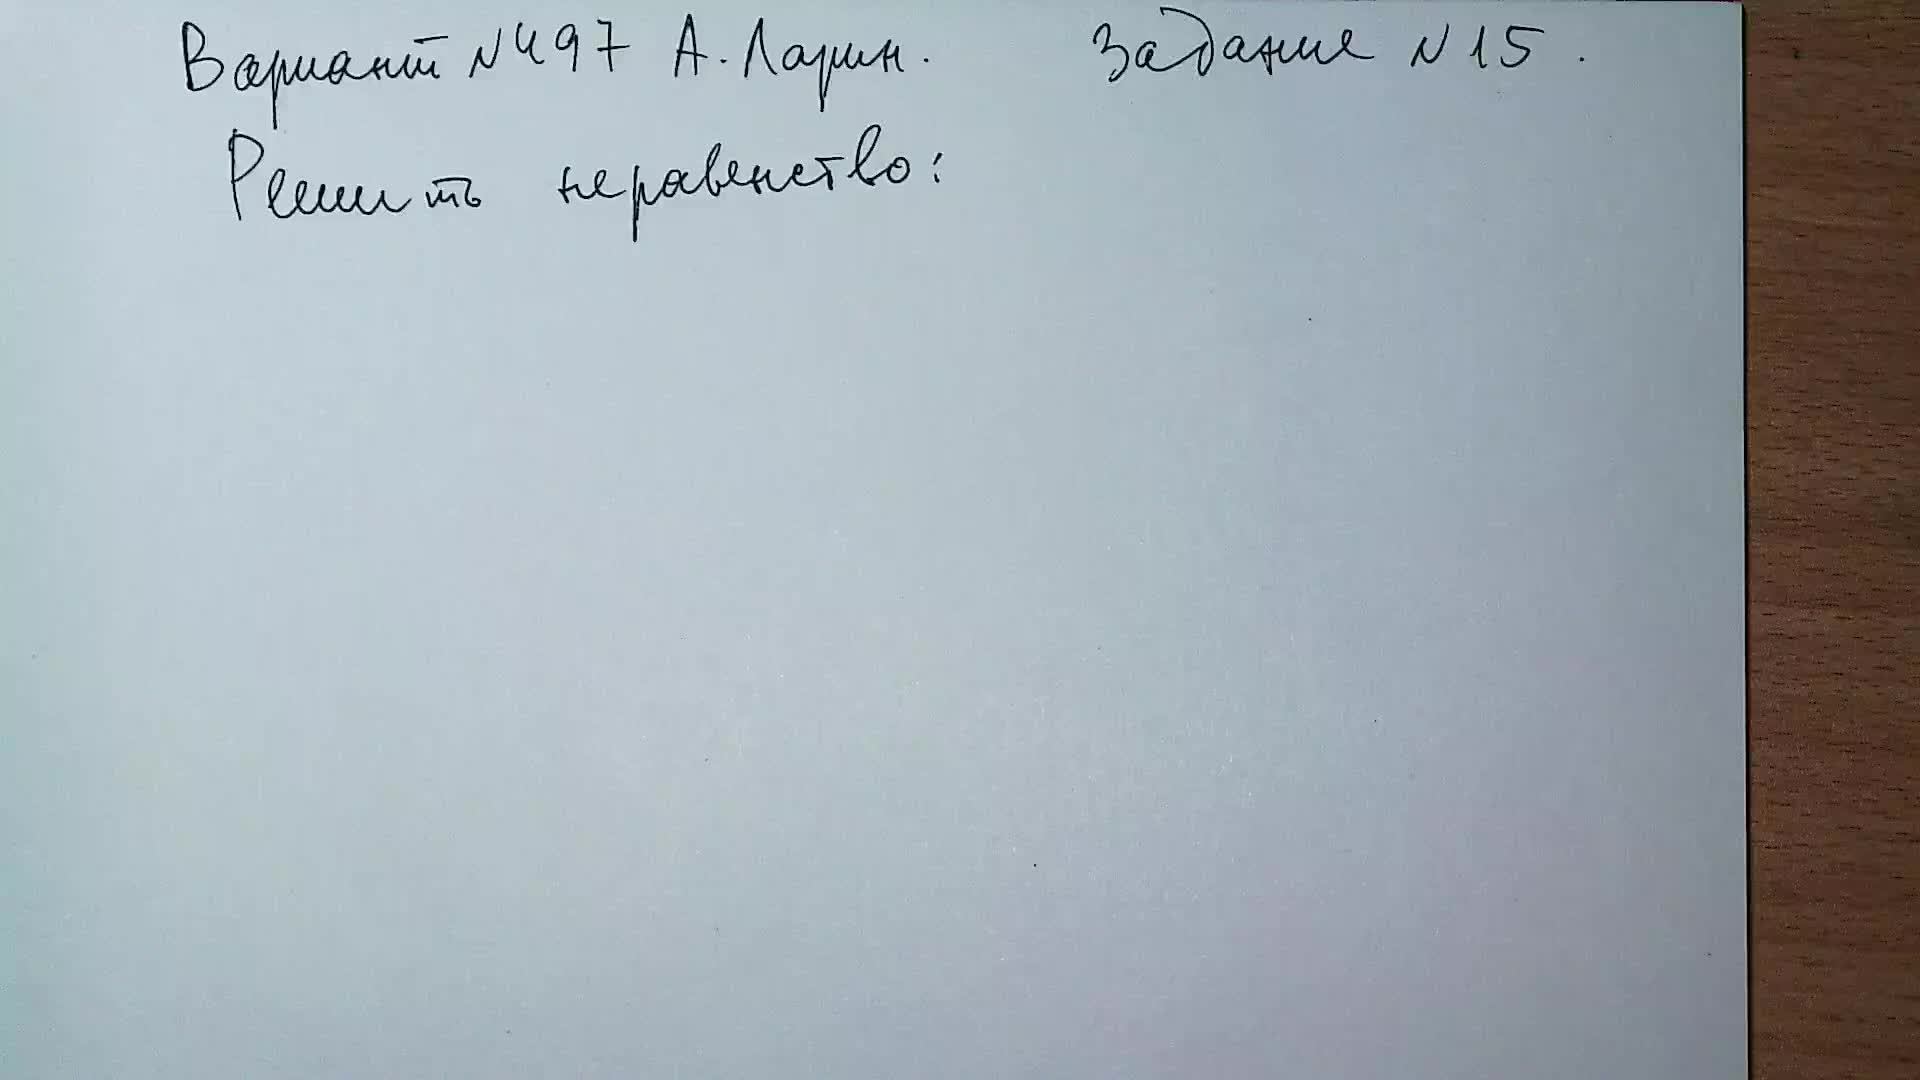 Вариант №497 А. Ларин. Задание №15.
Решить неравенство: